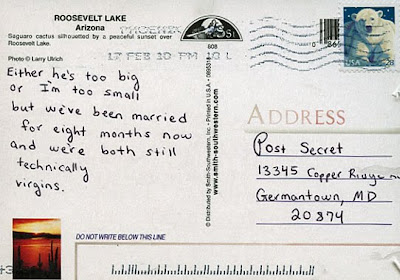 ROOSEVELT LAKE
Arizona
Saguaro cactus silhouetted by a peaceful sunset over
Roosevelt Lake.
Photo © Larry Ulrich
PHOENIX
17 FEB 10 PM 10 L
608
USA 28
Either he's too big
or I'm too small
but we've been married
for eight months now
and we're both still
technically
virgins.
© Distributed by Smith-Southwestern, Inc. • Printed in U.S.A.
www.smith-southwestern.com
ADDRESS
Post Secret
13345 Copper Ridge
Germantown, MD
20874
DO NOT WRITE BELOW THIS LINE